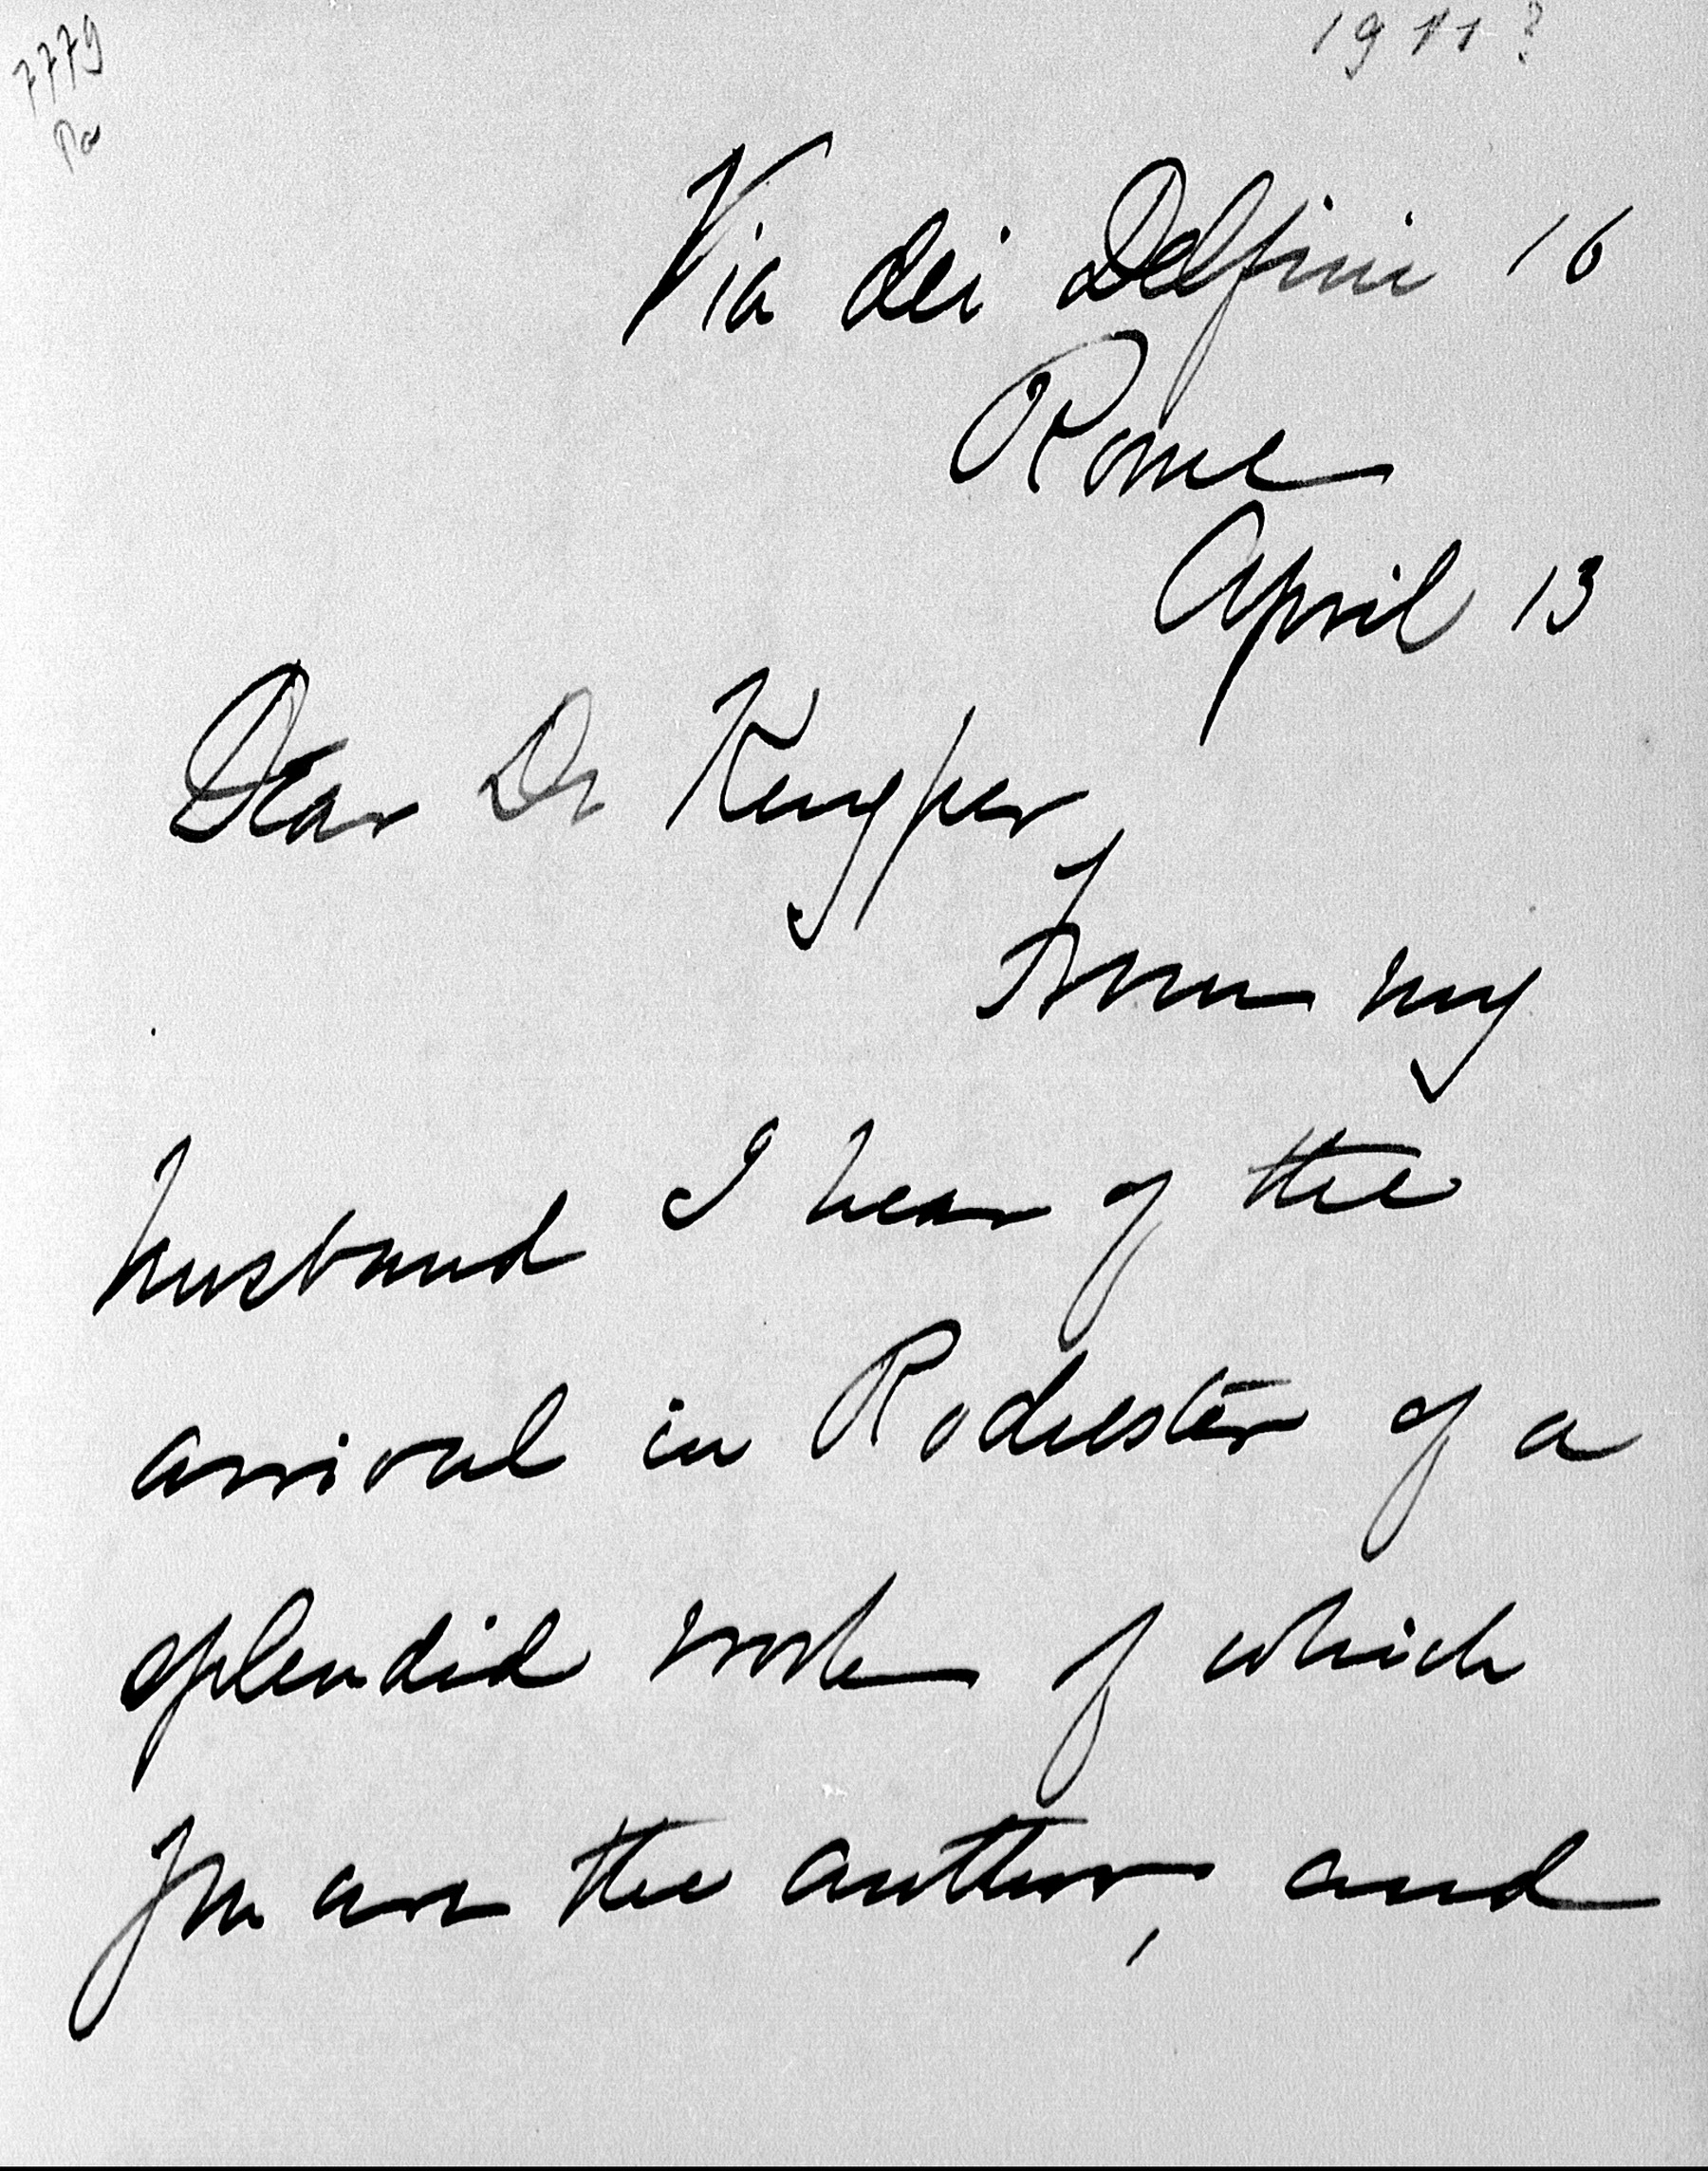 7779
Pa
1911?
Via dei Delfini 16
Rome
April 13
Dear Dr Kuyper,
From my
husband I hear of the
arrival in Rochester of a
splendid work of which
you are the author, and